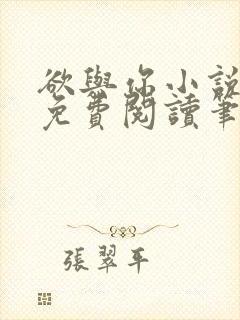 欲與你小說
免費閱讀筆
張翠平